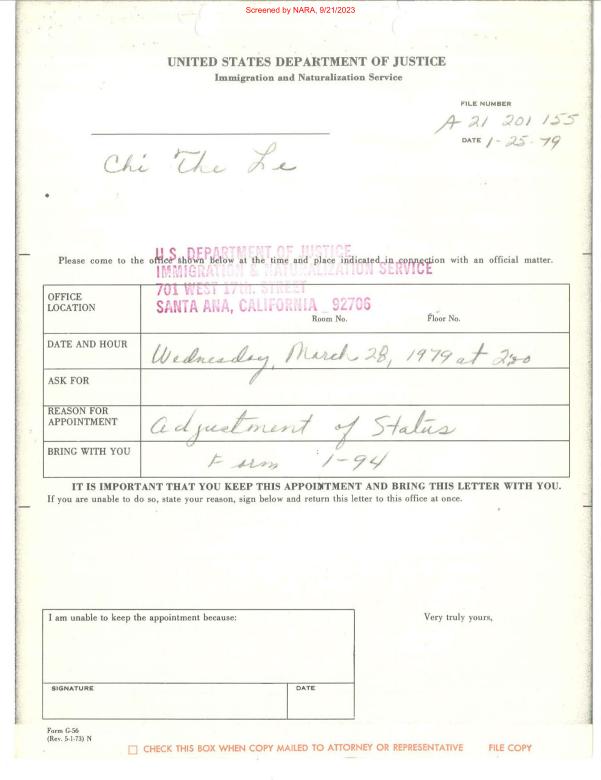 Screened by NARA, 9/21/2023
UNITED STATES DEPARTMENT OF JUSTICE
Immigration and Naturalization Service
FILE NUMBER
A 21 201 155
DATE 1-25-79
Chi The Le
U.S. DEPARTMENT OF JUSTICE
Please come to the office shown below at the time and place indicated in connection with an official matter.
IMMIGRATION & NATURALIZATION SERVICE
701 WEST 17th. STREET
SANTA ANA, CALIFORNIA 92706
OFFICE
LOCATION
Room No. Floor No.
DATE AND HOUR Wednesday, March 28, 1979 at 2:00
ASK FOR
REASON FOR
APPOINTMENT Adjustment of Status
BRING WITH YOU Form I-94
IT IS IMPORTANT THAT YOU KEEP THIS APPOINTMENT AND BRING THIS LETTER WITH YOU.
If you are unable to do so, state your reason, sign below and return this letter to this office at once.
I am unable to keep the appointment because:
Very truly yours,
SIGNATURE DATE
Form G-56
(Rev. 5-1-73) N
CHECK THIS BOX WHEN COPY MAILED TO ATTORNEY OR REPRESENTATIVE FILE COPY